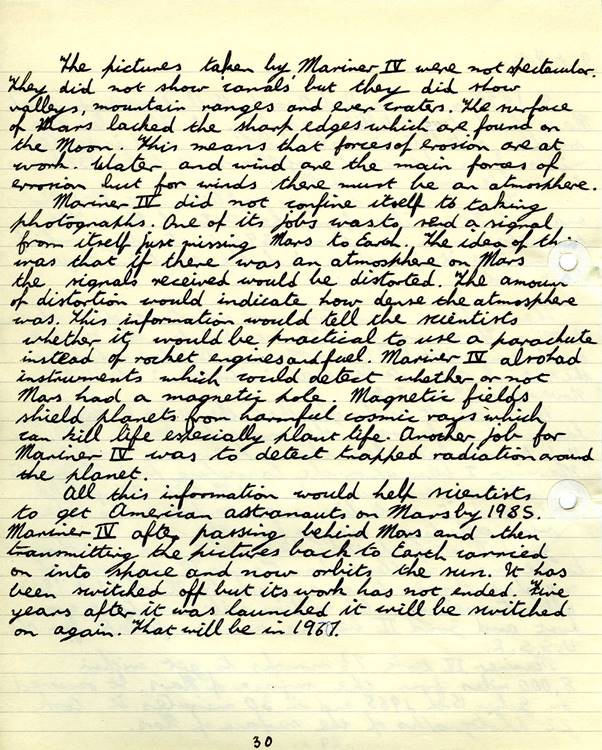 The pictures taken by Mariner IV were not spectacular.
They did not show canals but they did show
valleys, mountain ranges and even craters. The surface
of Mars lacked the sharp edges which are found on
the Moon. This means that forces of erosion are at
work. Water and wind are the main forces of
errosion but for winds there must be an atmosphere.
Mariner IV did not confine itself to taking
photographs. One of its jobs was to send a signal
from itself just missing Mars to Earth. The idea of th
was that if there was an atmosphere on Mars
the signals received would be distorted. The amoun
of distortion would indicate how dense the atmosphere
was. This information would tell the scientists
whether it would be practical to use a parachute
instead of rocket engines and fuel. Mariner IV also had
instruments which could detect whether or not
Mars had a magnetic pole. Magnetic fields
shield planets from harmful cosmic rays which
can kill life especially plant life. Another job for
Mariner IV was to detect trapped radiation around
the planet.
All this information would help scientists
to get American astranauts on Mars by 1985.
Mariner IV after passing behind Mars and then
transmitting the pictures back to Earth carried
on into space and now orbits the sun. It has
been switched off but its work has not ended. Five
years after it was launched it will be switched
on again. That will be in 1967.
30